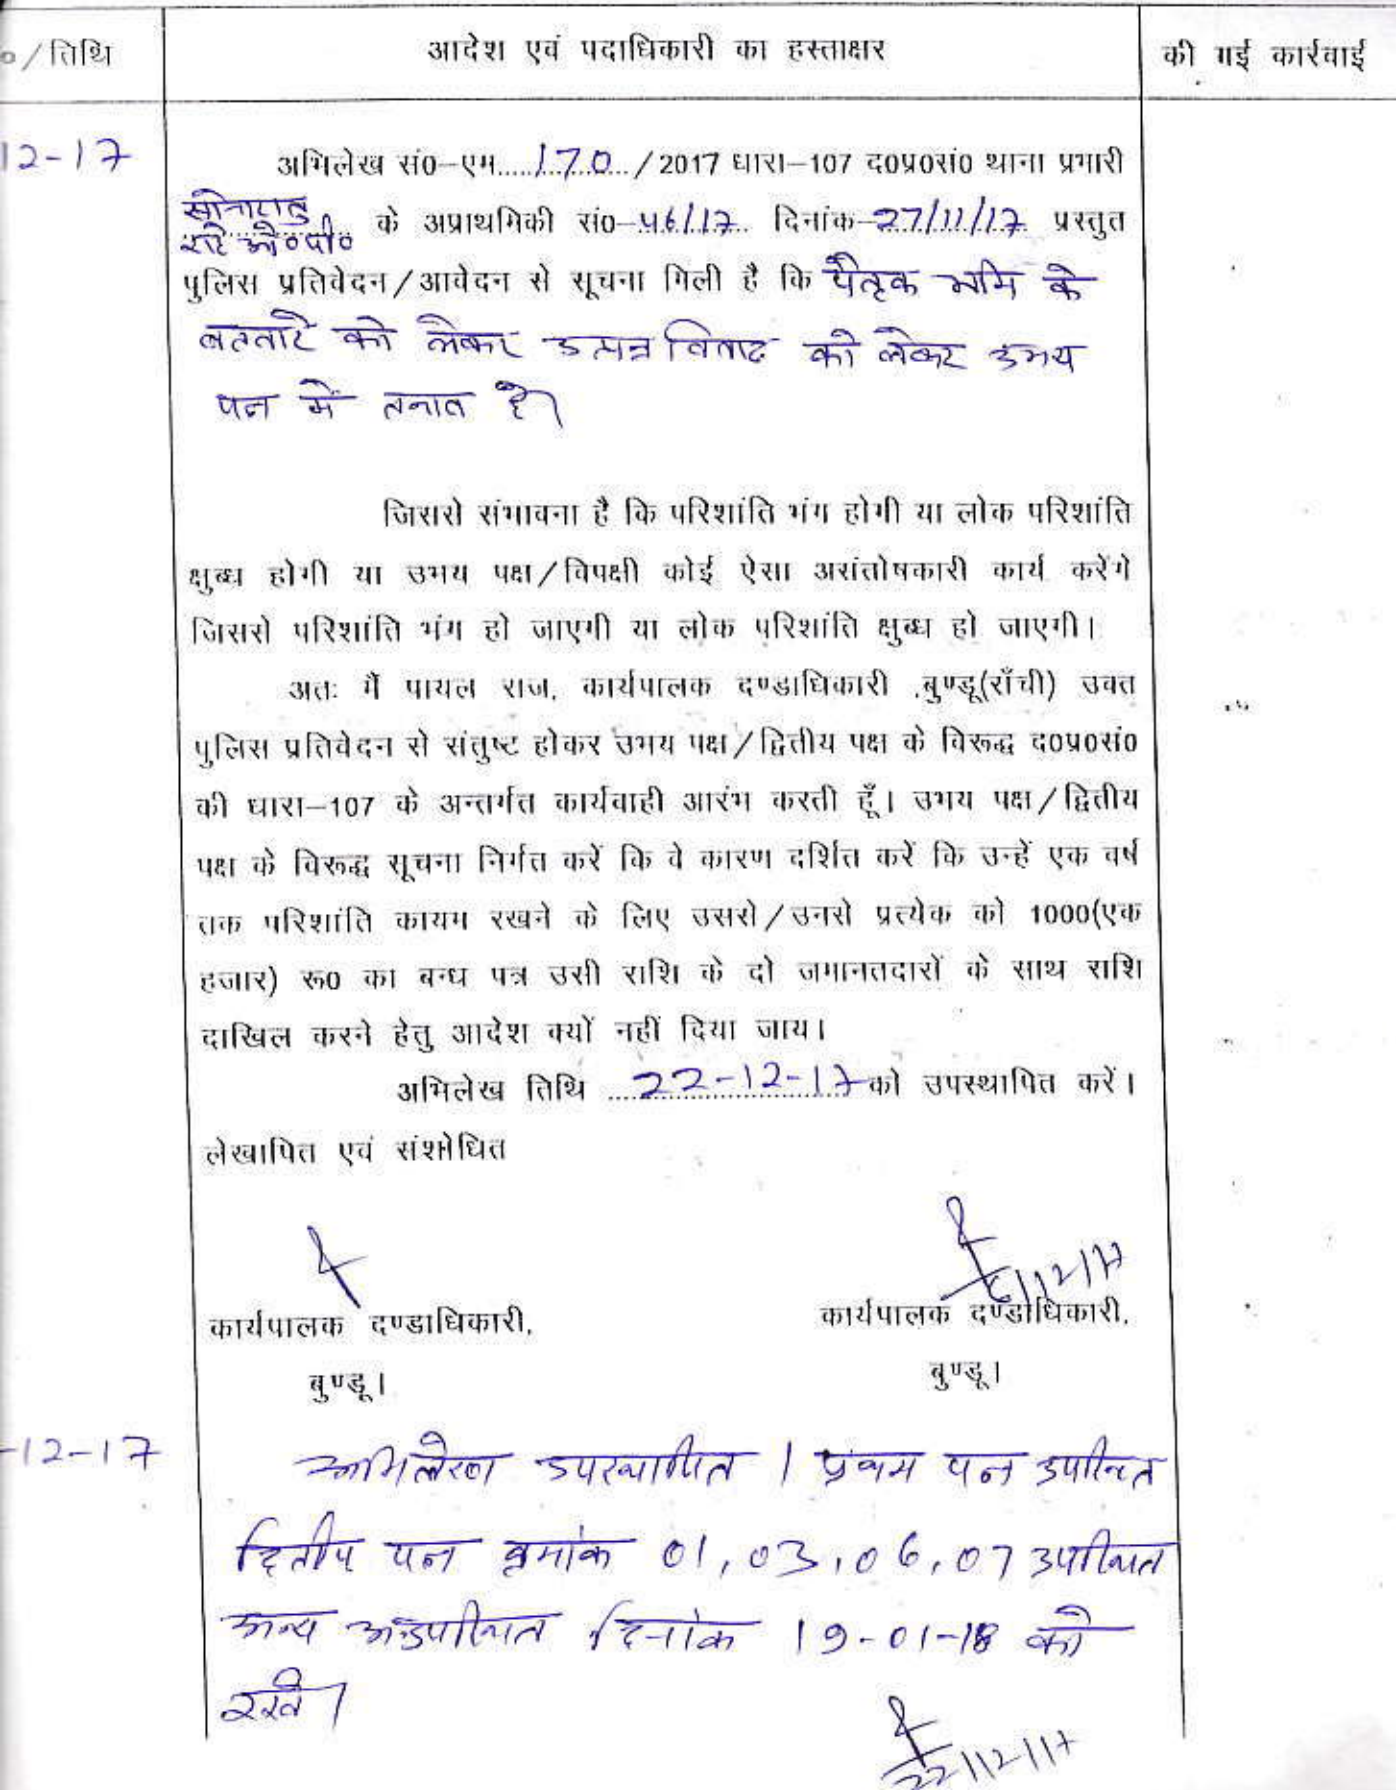 ०/तिथि
आदेश एवं पदाधिकारी का हस्ताक्षर
की गई कार्रवाई
12-17
अभिलेख सं०-एम.....170.../2017 धारा-107 द०प्र०सं० थाना प्रभारी
सोनाहातु
ओ०पी० के अप्राथमिकी सं०-46/17. दिनांक-27/11/17 प्रस्तुत
पुलिस प्रतिवेदन/आवेदन से सूचना मिली है कि पैतृक भूमि के
बटवारे को लेकर उत्पन्न विवाद को लेकर उभय
पक्ष में तनाव है।
जिससे संभावना है कि परिशांति भंग होगी या लोक परिशांति
क्षुब्ध होगी या उभय पक्ष/विपक्षी कोई ऐसा असंतोषकारी कार्य करेंगे
जिससे परिशांति भंग हो जाएगी या लोक परिशांति क्षुब्ध हो जाएगी।
अतः मैं पायल राज, कार्यपालक दण्डाधिकारी ,बुण्डू(राँची) उक्त
पुलिस प्रतिवेदन से संतुष्ट होकर उभय पक्ष/द्वितीय पक्ष के विरूद्ध द०प्र०सं०
की धारा-107 के अन्तर्गत कार्यवाही आरंभ करती हूँ। उभय पक्ष/द्वितीय
पक्ष के विरूद्ध सूचना निर्गत करें कि वे कारण दर्शित करें कि उन्हें एक वर्ष
तक परिशांति कायम रखने के लिए उससे/उनसे प्रत्येक को 1000(एक
हजार) रू० का बन्ध पत्र उसी राशि के दो जमानतदारों के साथ राशि
दाखिल करने हेतु आदेश क्यों नहीं दिया जाय।
अभिलेख तिथि ....22-12-17 को उपस्थापित करें।
लेखापित एवं संशोधित
6/12/17
कार्यपालक दण्डाधिकारी,
कार्यपालक दण्डाधिकारी,
बुण्डू।
बुण्डू।
-12-17
अभिलेख उपस्थापित । प्रथम पक्ष उपस्थित
द्वितीय पक्ष क्रमांक 01,03,06,07 उपस्थित
अन्य अनुपस्थित दिनांक 19-01-18 को
रखें।
22/12/17